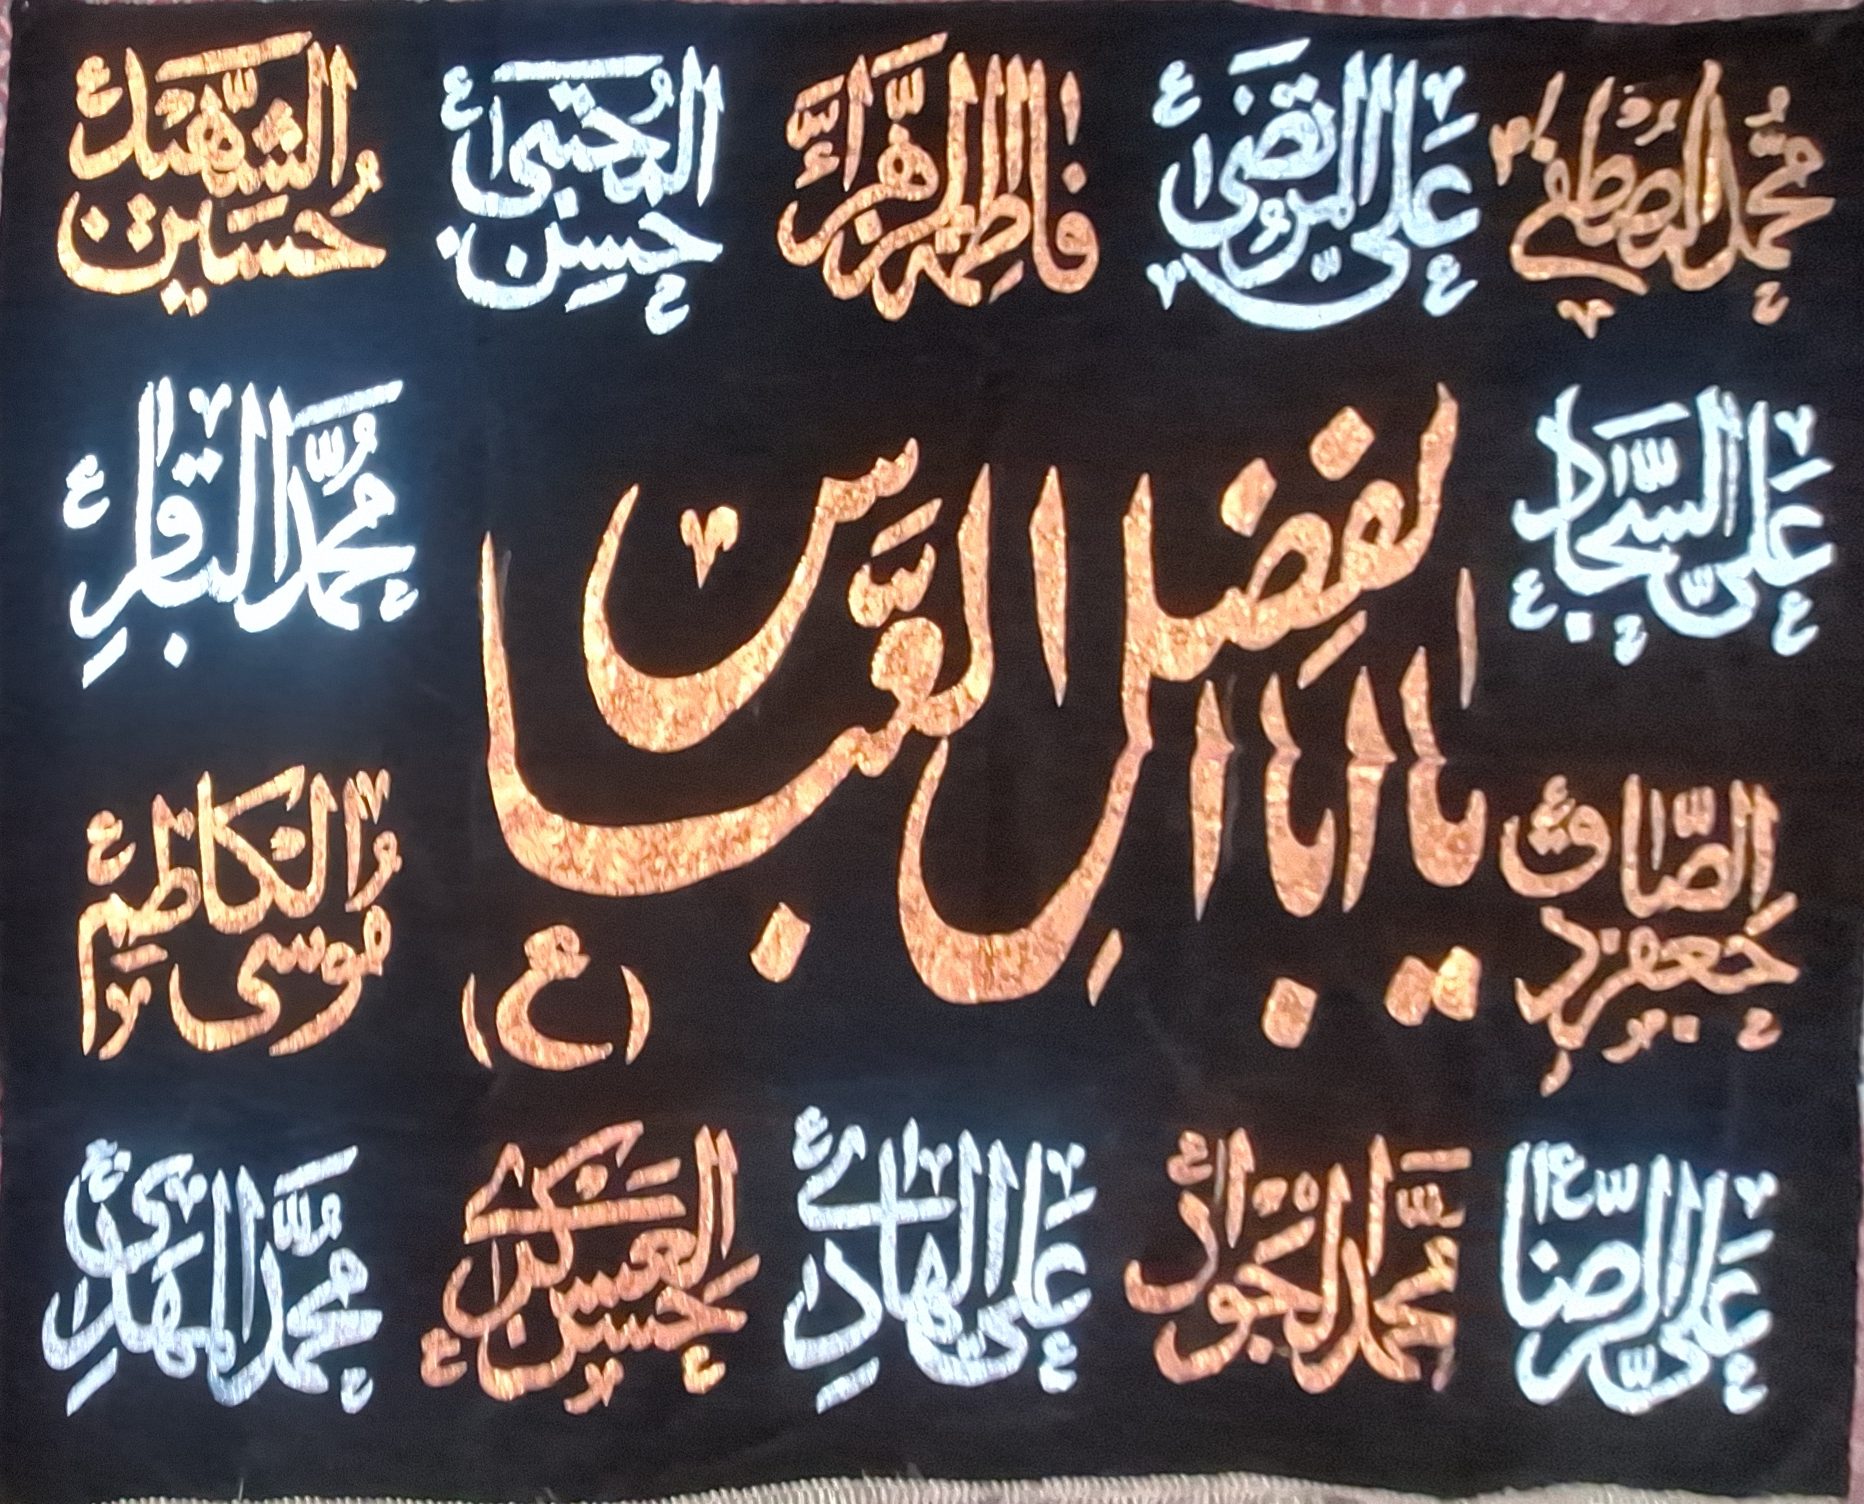 محمد المصطفی
علی المرتضیٰ
فاطمة الزهراء
حسن المجتبیٰ
حسین الشهید
علی السجاد
محمد الباقر
یا اباالفضل العباس (ع)
جعفر الصادق
موسی الکاظم
علی الرضا
محمد الجواد
علی الهادی
حسن العسکری
محمد المهدی